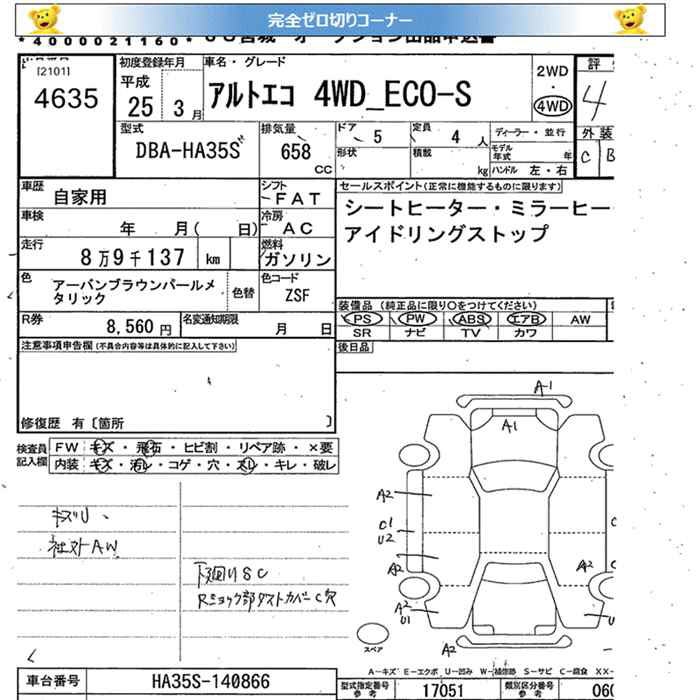 完全ゼロ切りコーナー
*4000021160*
[2101]
4635
初度登録年月
平成
25 3月
車名・グレード
アルトエコ 4WD_ECO-S
2WD
・
4WD
評
4
型式
DBA-HA35S
排気量
658
CC
ドア 5
定員 4 人
形状
積載 kg
ディーラー・並行
モデル年式 年
ハンドル 左・右
外 装
C B
車歴
自家用
シフト
FAT
セールスポイント(正常に機能するものに限ります)
シートヒーター・ミラーヒー
アイドリングストップ
車検
年 月( 日)
冷房
AC
走行
8万9千137 km
燃料
ガソリン
色
アーバンブラウンパールメ
タリック
色替
色コード
ZSF
装備品(純正品に限り○をつけてください)
PS PW ABS エアB AW
SR ナビ TV カワ
R券
8,560円
名変通知期限
月 日
後日品
注意事項申告欄(不具合内容等は具体的に記入して下さい)
修復歴 有〔箇所 〕
検査員
記入欄
FW キズ・飛石・ヒビ割・リペア跡・×要
内装 キズ・汚レ・コゲ・穴・スレ・キレ・破レ
キズU、
社外AW
下廻りSC
Rショック部ダストカバーC穴
A1
A1
A2
C1
U2
A2
A2
A2
U1
U1
A2
スペア
A-キズ E-エクボ U-凹み W-補修跡 S-サビ C-腐食 XX-
車台番号
HA35S-140866
型式指定番号
参考
17051
類別区分番号
参考
060